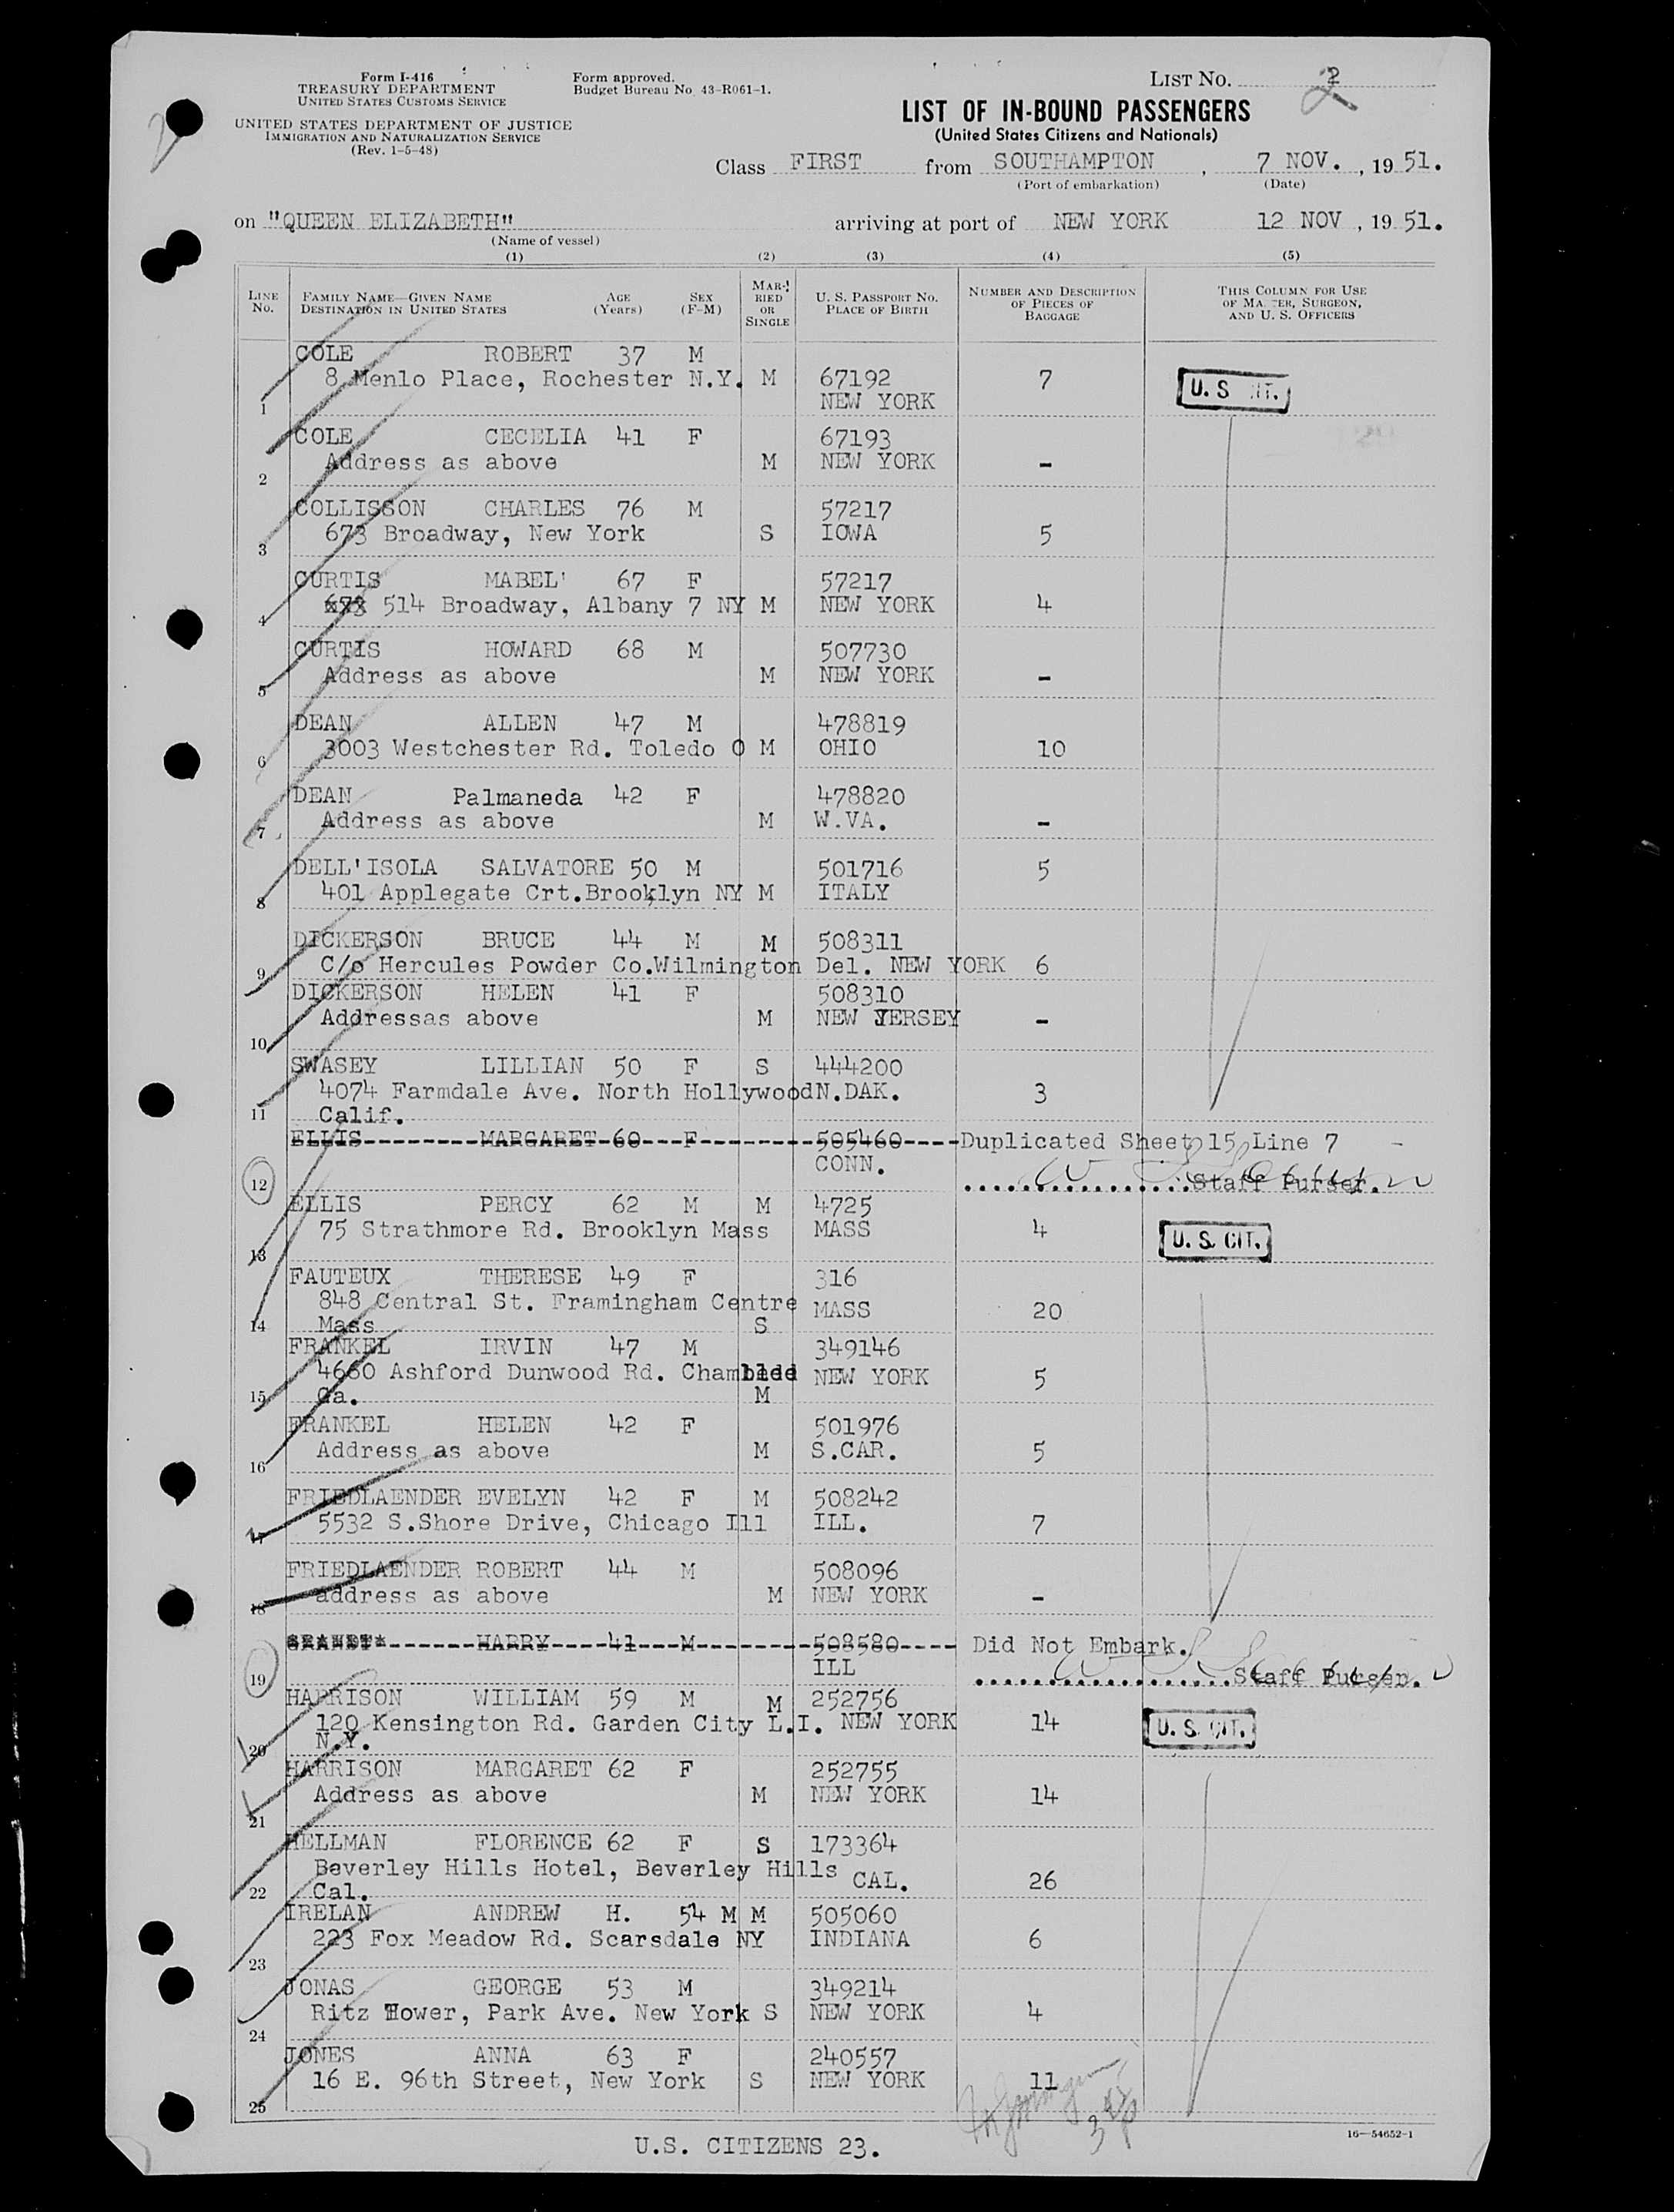 Form I-416
TREASURY DEPARTMENT
UNITED STATES CUSTOMS SERVICE
UNITED STATES DEPARTMENT OF JUSTICE
IMMIGRATION AND NATURALIZATION SERVICE
(Rev. 1-5-48)
Form approved.
Budget Bureau No. 43-R061-1.
LIST NO. 2
2
LIST OF IN-BOUND PASSENGERS
(United States Citizens and Nationals)
Class FIRST from SOUTHAMPTON, 7 NOV., 19 51.
(Port of embarkation) (Date)
on "QUEEN ELIZABETH" arriving at port of NEW YORK 12 NOV, 19 51.
(Name of vessel)
(1) (2) (3) (4) (5)
LINE NO. FAMILY NAME—GIVEN NAME DESTINATION IN UNITED STATES AGE (Years) SEX (F-M) MARRIED OR SINGLE U. S. PASSPORT NO. PLACE OF BIRTH NUMBER AND DESCRIPTION OF PIECES OF BAGGAGE THIS COLUMN FOR USE OF MASTER, SURGEON, AND U. S. OFFICERS
COLE ROBERT 37 M
8 Menlo Place, Rochester N.Y. M 67192 7 U. S CIT.
1 NEW YORK
COLE CECELIA 41 F 67193
Address as above M NEW YORK -
2
COLLISSON CHARLES 76 M 57217
673 Broadway, New York S IOWA 5
3
CURTIS MABEL' 67 F 57217
673 514 Broadway, Albany 7 NY M NEW YORK 4
4
CURTIS HOWARD 68 M 507730
Address as above M NEW YORK -
5
DEAN ALLEN 47 M 478819
3003 Westchester Rd. Toledo O M OHIO 10
6
DEAN Palmaneda 42 F 478820
Address as above M W.VA. -
7
DELL'ISOLA SALVATORE 50 M 501716 5
401 Applegate Crt.Brooklyn NY M ITALY
8
DICKERSON BRUCE 44 M M 508311
C/o Hercules Powder Co.Wilmington Del. NEW YORK 6
9
DICKERSON HELEN 41 F 508310
Addressas above M NEW JERSEY -
10
SWASEY LILLIAN 50 F S 444200
4074 Farmdale Ave. North Hollywood N.DAK. 3
11 Calif.
ELLIS MARGARET 60 F 505460 Duplicated Sheet 15 Line 7 -
CONN.
12 Staff Purser.
ELLIS PERCY 62 M M 4725
75 Strathmore Rd. Brooklyn Mass MASS 4 U. S. CIT.
13
FAUTEUX THERESE 49 F 316
848 Central St. Framingham Centre MASS 20
14 Mass S
FRANKEL IRVIN 47 M 349146
4660 Ashford Dunwood Rd. NEW YORK 5
15 Ga. M
FRANKEL HELEN 42 F 501976
Address as above M S.CAR. 5
16
FRIEDLAENDER EVELYN 42 F M 508242
5532 S.Shore Drive, Chicago Ill ILL. 7
17
FRIEDLAENDER ROBERT 44 M 508096
address as above M NEW YORK -
18
HARRY 41 M 508580 Did Not Embark.
ILL
19 Staff Purser.
HARRISON WILLIAM 59 M M 252756
120 Kensington Rd. Garden City L.I. NEW YORK 14 U. S. CIT.
20 N.Y.
HARRISON MARGARET 62 F 252755
Address as above M NEW YORK 14
21
HELLMAN FLORENCE 62 F S 173364
Beverley Hills Hotel, Beverley Hills CAL. 26
22 Cal.
IRELAN ANDREW H. 54 M M 505060
223 Fox Meadow Rd. Scarsdale NY INDIANA 6
23
JONAS GEORGE 53 M 349214
Ritz Tower, Park Ave. New York S NEW YORK 4
24
JONES ANNA 63 F 240557
16 E. 96th Street, New York S NEW YORK 11
25
16—54652-1
U.S. CITIZENS 23.